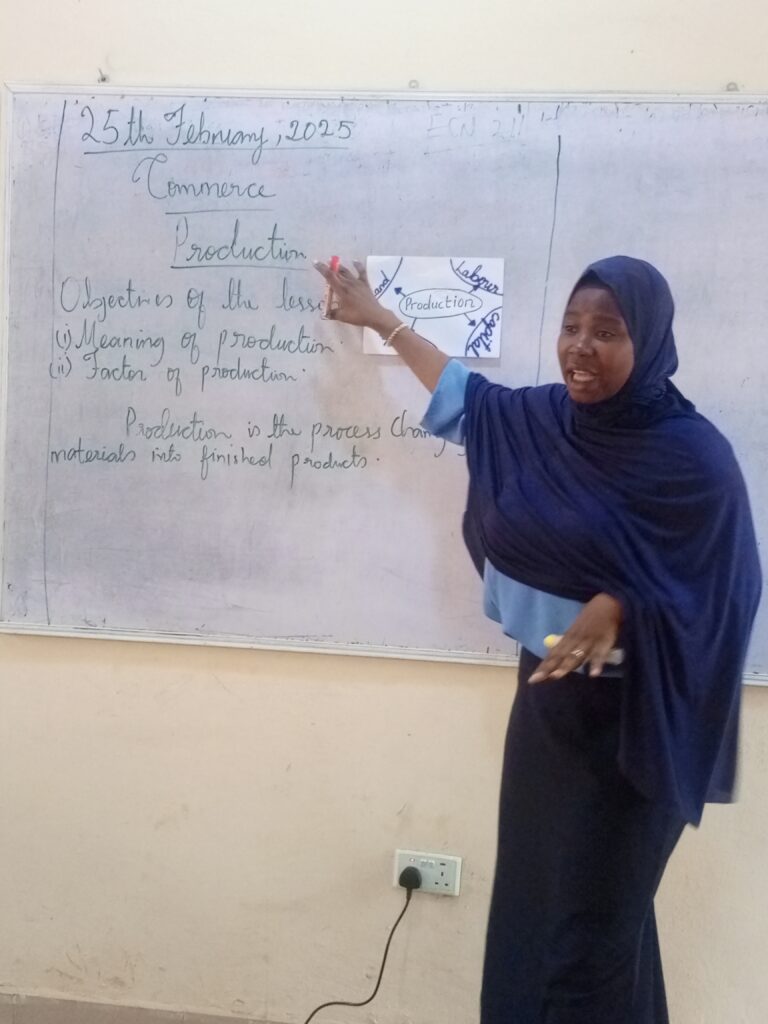 25th February, 2025
ECN 211
Commerce
Production
Objectives of the less
(i) Meaning of production.
(ii) Factor of production.
Production is the process Chang
materials into finished products.
and
Labour
Production
Capital